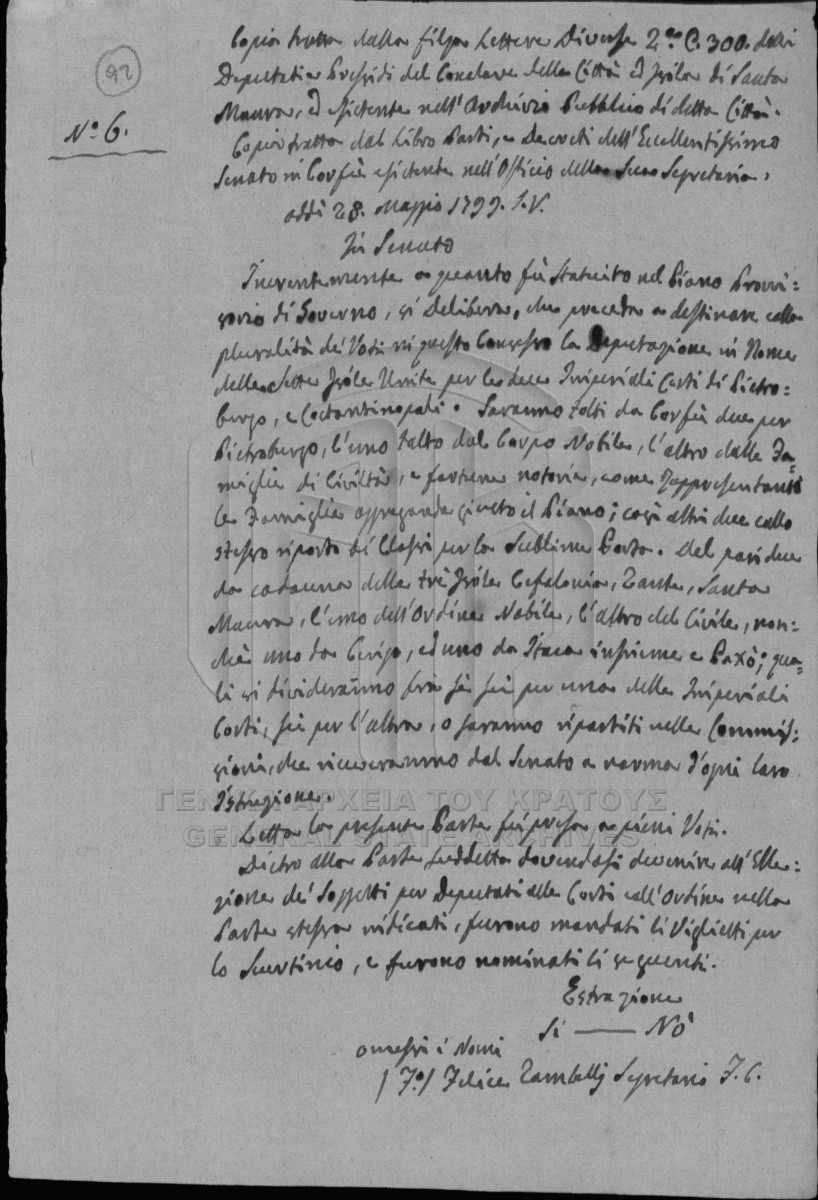 92
Nº 6.
Copia tratta dalla filza Lettere Diverse 2.do C. 300. delli
Deputati e Presidi del Conclave della Città ed Isola di Santa
Maura, ed esistente nell'Archivio Pubblico di detta Città.
Copia tratta dal Libro Parti, e Decreti dell'Eccellentissimo
Senato in Corfù esistente nell'Officio della Sua Segretaria,
addì 28. Maggio 1799. S.V.
In Senato
Inerentemente a quanto fù statuito nel Piano Provvi=
sorio di Governo, si Delibera, che proceda a destinare colla
pluralità de' Voti in questo Consesso la Deputazione in Nome
delle Sette Isole Unite per le due Imperiali Corti di Pietro=
burgo, e Costantinopoli. Saranno tolti da Corfù due per
Pietroburgo, l'uno tolto dal Corpo Nobile, l'altro dalle Fa=
miglie di Civiltà, e fortuna notoria, come rappresentanti
le Famiglie aggregande giusto il Piano; così altri due collo
stesso riparto di Classi per la Sublime Porta. Del pari due
da cadauna delle trè Isole Cefalonia, Zante, Santa
Maura, l'uno dell'Ordine Nobile, l'altro del Civile, non=
chè uno da Cerigo, ed uno da Itaca insieme e Paxò; qua=
li si divideranno frà sè sia per una delle Imperiali
Corti, sia per l'altra, o saranno ripartiti nelle Commis=
sioni, che riceveranno dal Senato a norma d'ogni loro
Istruzione.
Letta la presente Parte fù presa a pieni Voti.
Dietro alla Parte suddetta dovendosi devenire all'Elle=
zione de' Soggetti per Deputati alle Corti coll'Ordine nella
Parte stessa indicati, furono mandati li Viglietti per
lo Scrutinio, e furono nominati li seguenti.
Estrazione
Si —— Nò
omessi i Nomi
/ F.º / Felice Zambelli Segretario
ΓΕΝΙΚΑ ΑΡΧΕΙΑ ΤΟΥ ΚΡΑΤΟΥΣ
GENERAL STATE ARCHIVES